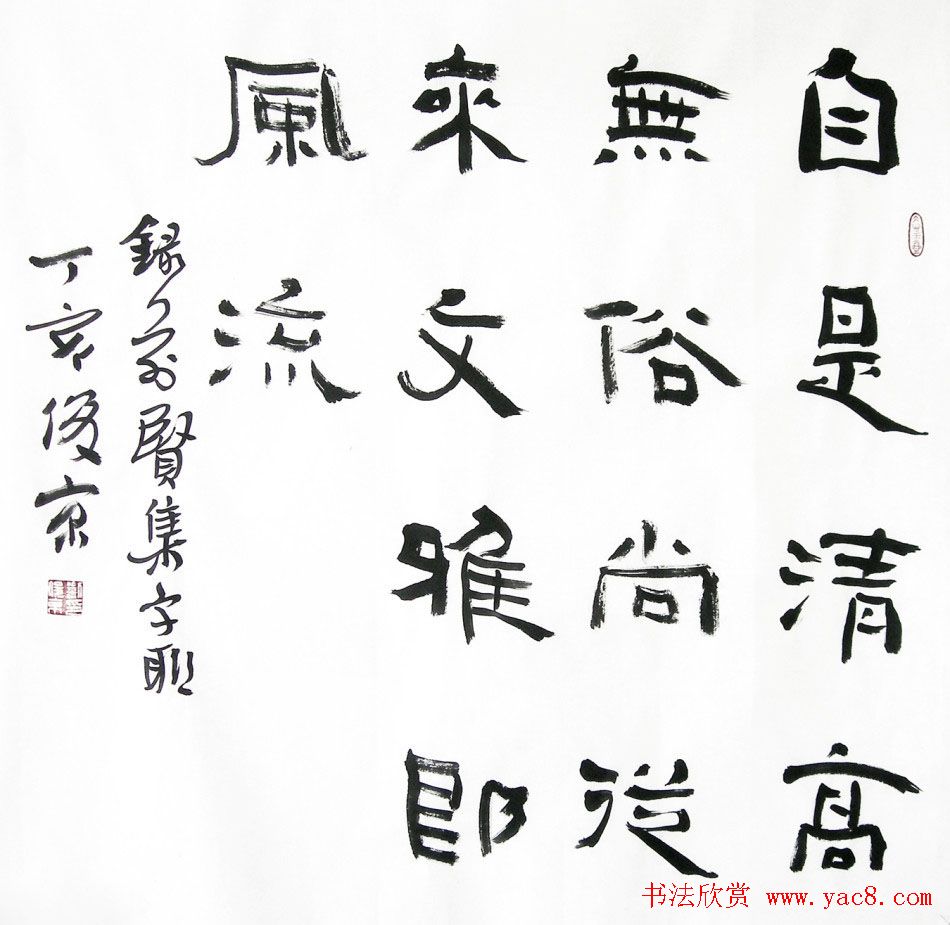 自是清高
無俗尚從
來文雅即
風流
錄前賢集字聯
丁亥俊京
书法欣赏 www.yac8.com